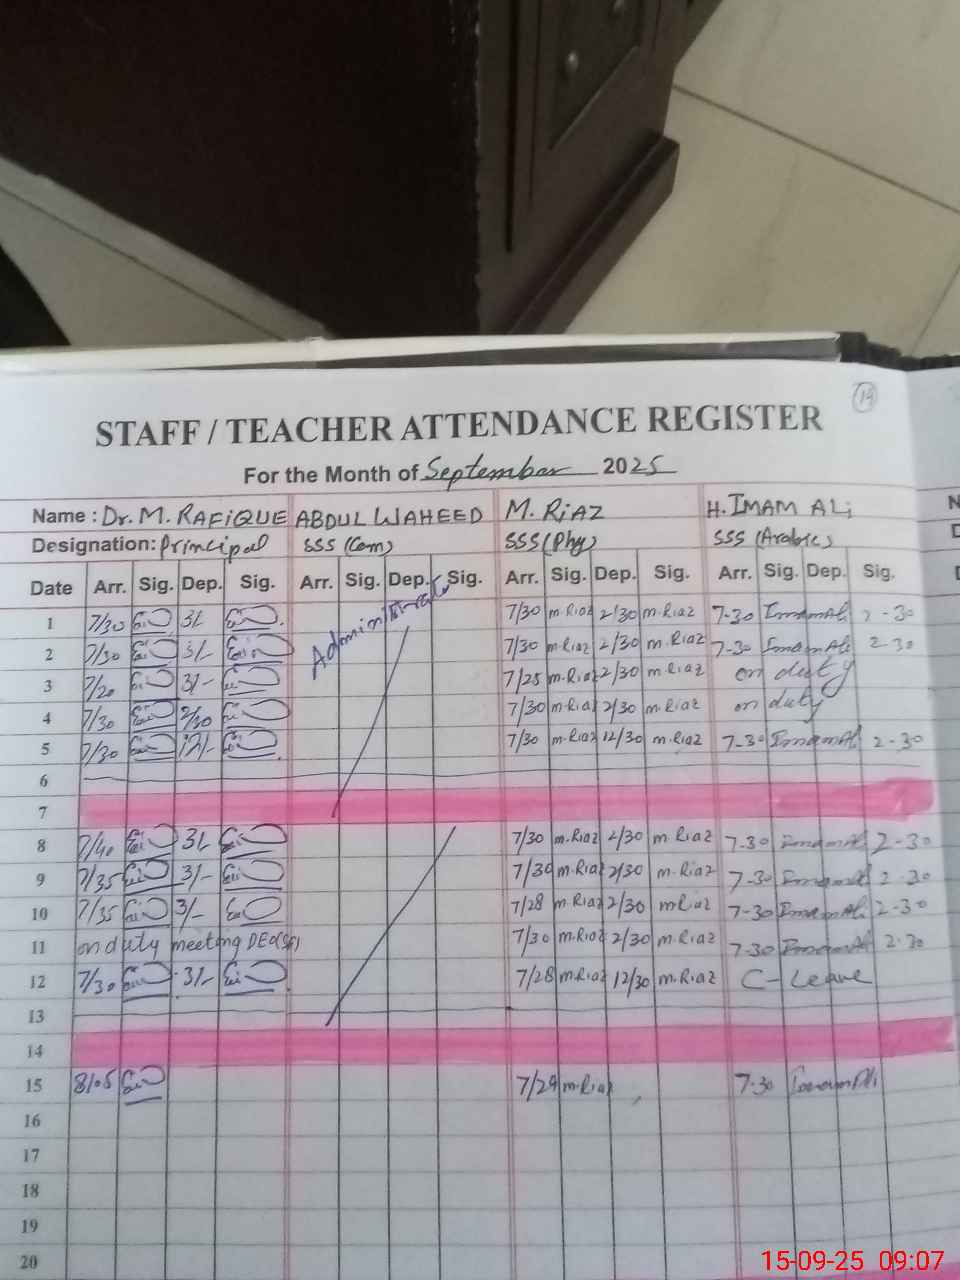 14
STAFF / TEACHER ATTENDANCE REGISTER
For the Month of September 2025
Name : Dr. M. RAFIQUE ABDUL WAHEED M. RiAZ H. IMAM ALi
Designation: Principal SSS (Com) SSS (Phy) SSS (Arabic)
Date Arr. Sig. Dep. Sig. Arr. Sig. Dep. Sig. Arr. Sig. Dep. Sig. Arr. Sig. Dep. Sig.
1 7/30 3/- 7/30 m.Riaz 2/30 m.Riaz 7-30 ImamAli 2-30
2 7/30 3/- 7/30 m.Riaz 2/30 m.Riaz 7-30 ImamAli 2-30
3 7/20 3/- 7/25 m.Riaz 2/30 m.Riaz on duty
4 7/30 2/30 7/30 m.Riaz 2/30 m.Riaz on duty
5 7/30 12/- 7/30 m.Riaz 12/30 m.Riaz 7-30 ImamAli 2-30
6
7
8 7/40 3/- 7/30 m.Riaz 2/30 m.Riaz 7-30 ImamAli 2-30
9 7/35 3/- 7/30 m.Riaz 2/30 m.Riaz 7-30 ImamAli 2-30
10 7/35 3/- 7/28 m.Riaz 2/30 m.Riaz 7-30 ImamAli 2-30
11 on duty meeting DEO(SE) 7/30 m.Riaz 2/30 m.Riaz 7-30 ImamAli 2-30
12 7/30 3/- 7/28 m.Riaz 12/30 m.Riaz C-Leave
13
14
15 8/05 7/29 m.Riaz 7-30 ImamAli
16
17
18
19
20
15-09-25 09:07